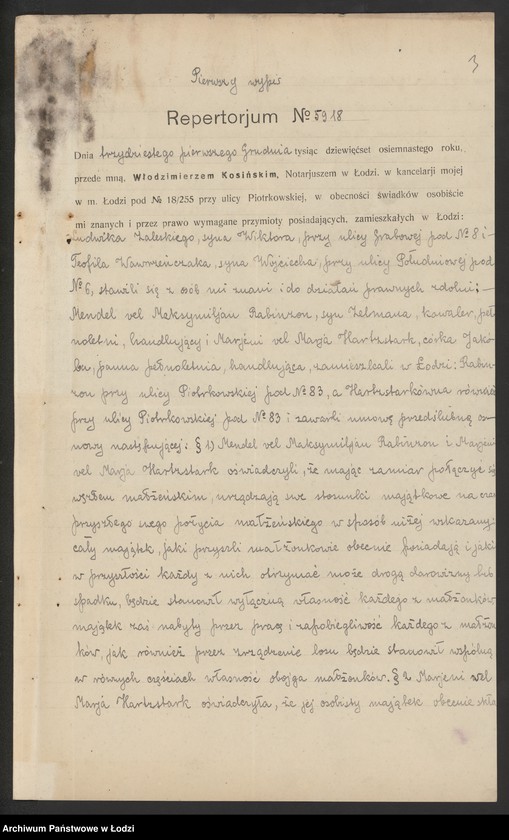 3
Pierwszy wypis
Repertorjum № 5918
Dnia trzydziestego pierwszego Grudnia tysiąc dziewięćset osiemnastego roku,
przede mną, Włodzimierzem Kosińskim, Notarjuszem w Łodzi, w kancelarji mojej
w m. Łodzi pod № 18/255 przy ulicy Piotrkowskiej, w obecności świadków osobiście
mi znanych i przez prawo wymagane przymioty posiadających, zamieszkałych w Łodzi:
Ludwika Zaleskiego, syna Wiktora, przy ulicy Grabowej pod № 8 i
Teofila Wawrzeńczaka, syna Wojciecha, przy ulicy Południowej pod
№ 6, stawili się z osób mi znani i do działań prawnych zdolni: —
Mendel vel Maksymiljan Rabinzon, syn Zelmana, kawaler, peł
noletni, handlujący i Marjem vel Marja Hartzstark, córka Jakó-
ba, panna pełnoletnia, handlująca, zamieszkali w Łodzi: Rabin
zon przy ulicy Piotrkowskiej pod № 83, a Hartzstarkówna również
przy ulicy Piotrkowskiej pod № 83 i zawarli umowę przedślubną os
nowy następującej: § 1) Mendel vel Maksymiljan Rabinzon i Marjem
vel Marja Hartzstark oświadczyli, że mając zamiar połączyć się
węzłem małżeńskim, urządzają swe stosunki majątkowe na czas
przyszłego swego pożycia małżeńskiego w sposób niżej wskazany:
cały majątek, jaki przyszli małżonkowie obecnie posiadają i jaki
w przyszłości każdy z nich otrzymać może drogą darowizny lub
spadku, będzie stanowił wyłączną własność każdego z małżonków
majątek zaś nabyty przez pracę i zapobiegliwość każdego z małżon
ków, jak również przez zrządzenie losu będzie stanowił wspólną
w równych częściach własność obojga małżonków. § 2 Marjem vel
Marja Hartzstark oświadczyła, że jej osobisty majątek obecnie skła
Archiwum Państwowe w Łodzi